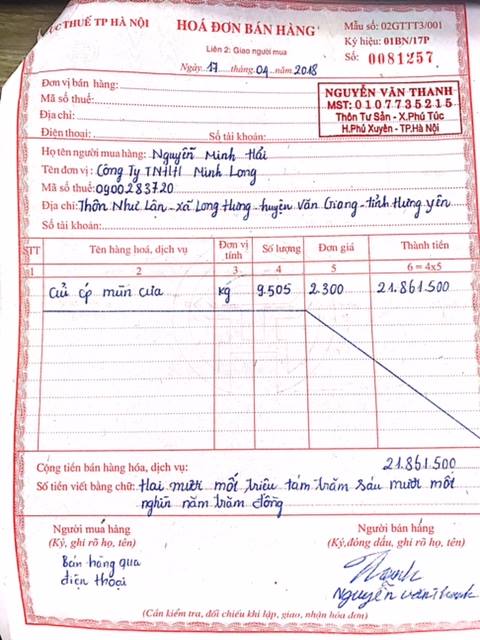 CỤC THUẾ TP HÀ NỘI
HOÁ ĐƠN BÁN HÀNG
Mẫu số: 02GTTT3/001
Liên 2: Giao người mua
Ký hiệu: 01BN/17P
Ngày 17 tháng 04 năm 2018
Số: 0081257
Đơn vị bán hàng:
Mã số thuế:
Địa chỉ:
Điện thoại: Số tài khoản:
NGUYỄN VĂN THANH
MST: 0107735215
Thôn Tư Sản - X.Phú Túc
H.Phú Xuyên - TP.Hà Nội
Họ tên người mua hàng: Nguyễn Minh Hải
Tên đơn vị: Công Ty TNHH Minh Long
Mã số thuế: 0900283720
Địa chỉ: Thôn Như Lân - xã Long Hưng - huyện Văn Giang - tỉnh Hưng yên
Số tài khoản:
STT Tên hàng hoá, dịch vụ Đơn vị tính Số lượng Đơn giá Thành tiền
1 2 3 4 5 6 = 4x5
Củi ép mùn cưa kg 9.505 2.300 21.861.500
Cộng tiền bán hàng hóa, dịch vụ: 21.861.500
Số tiền viết bằng chữ: Hai mươi mốt triệu tám trăm sáu mươi mốt
nghìn năm trăm đồng
Người mua hàng
(Ký, ghi rõ họ, tên)
Bán hàng qua
điện thoại
Người bán hàng
(Ký, đóng dấu, ghi rõ họ, tên)
Thanh
Nguyễn văn Thanh
(Cần kiểm tra, đối chiếu khi lập, giao, nhận hóa đơn)